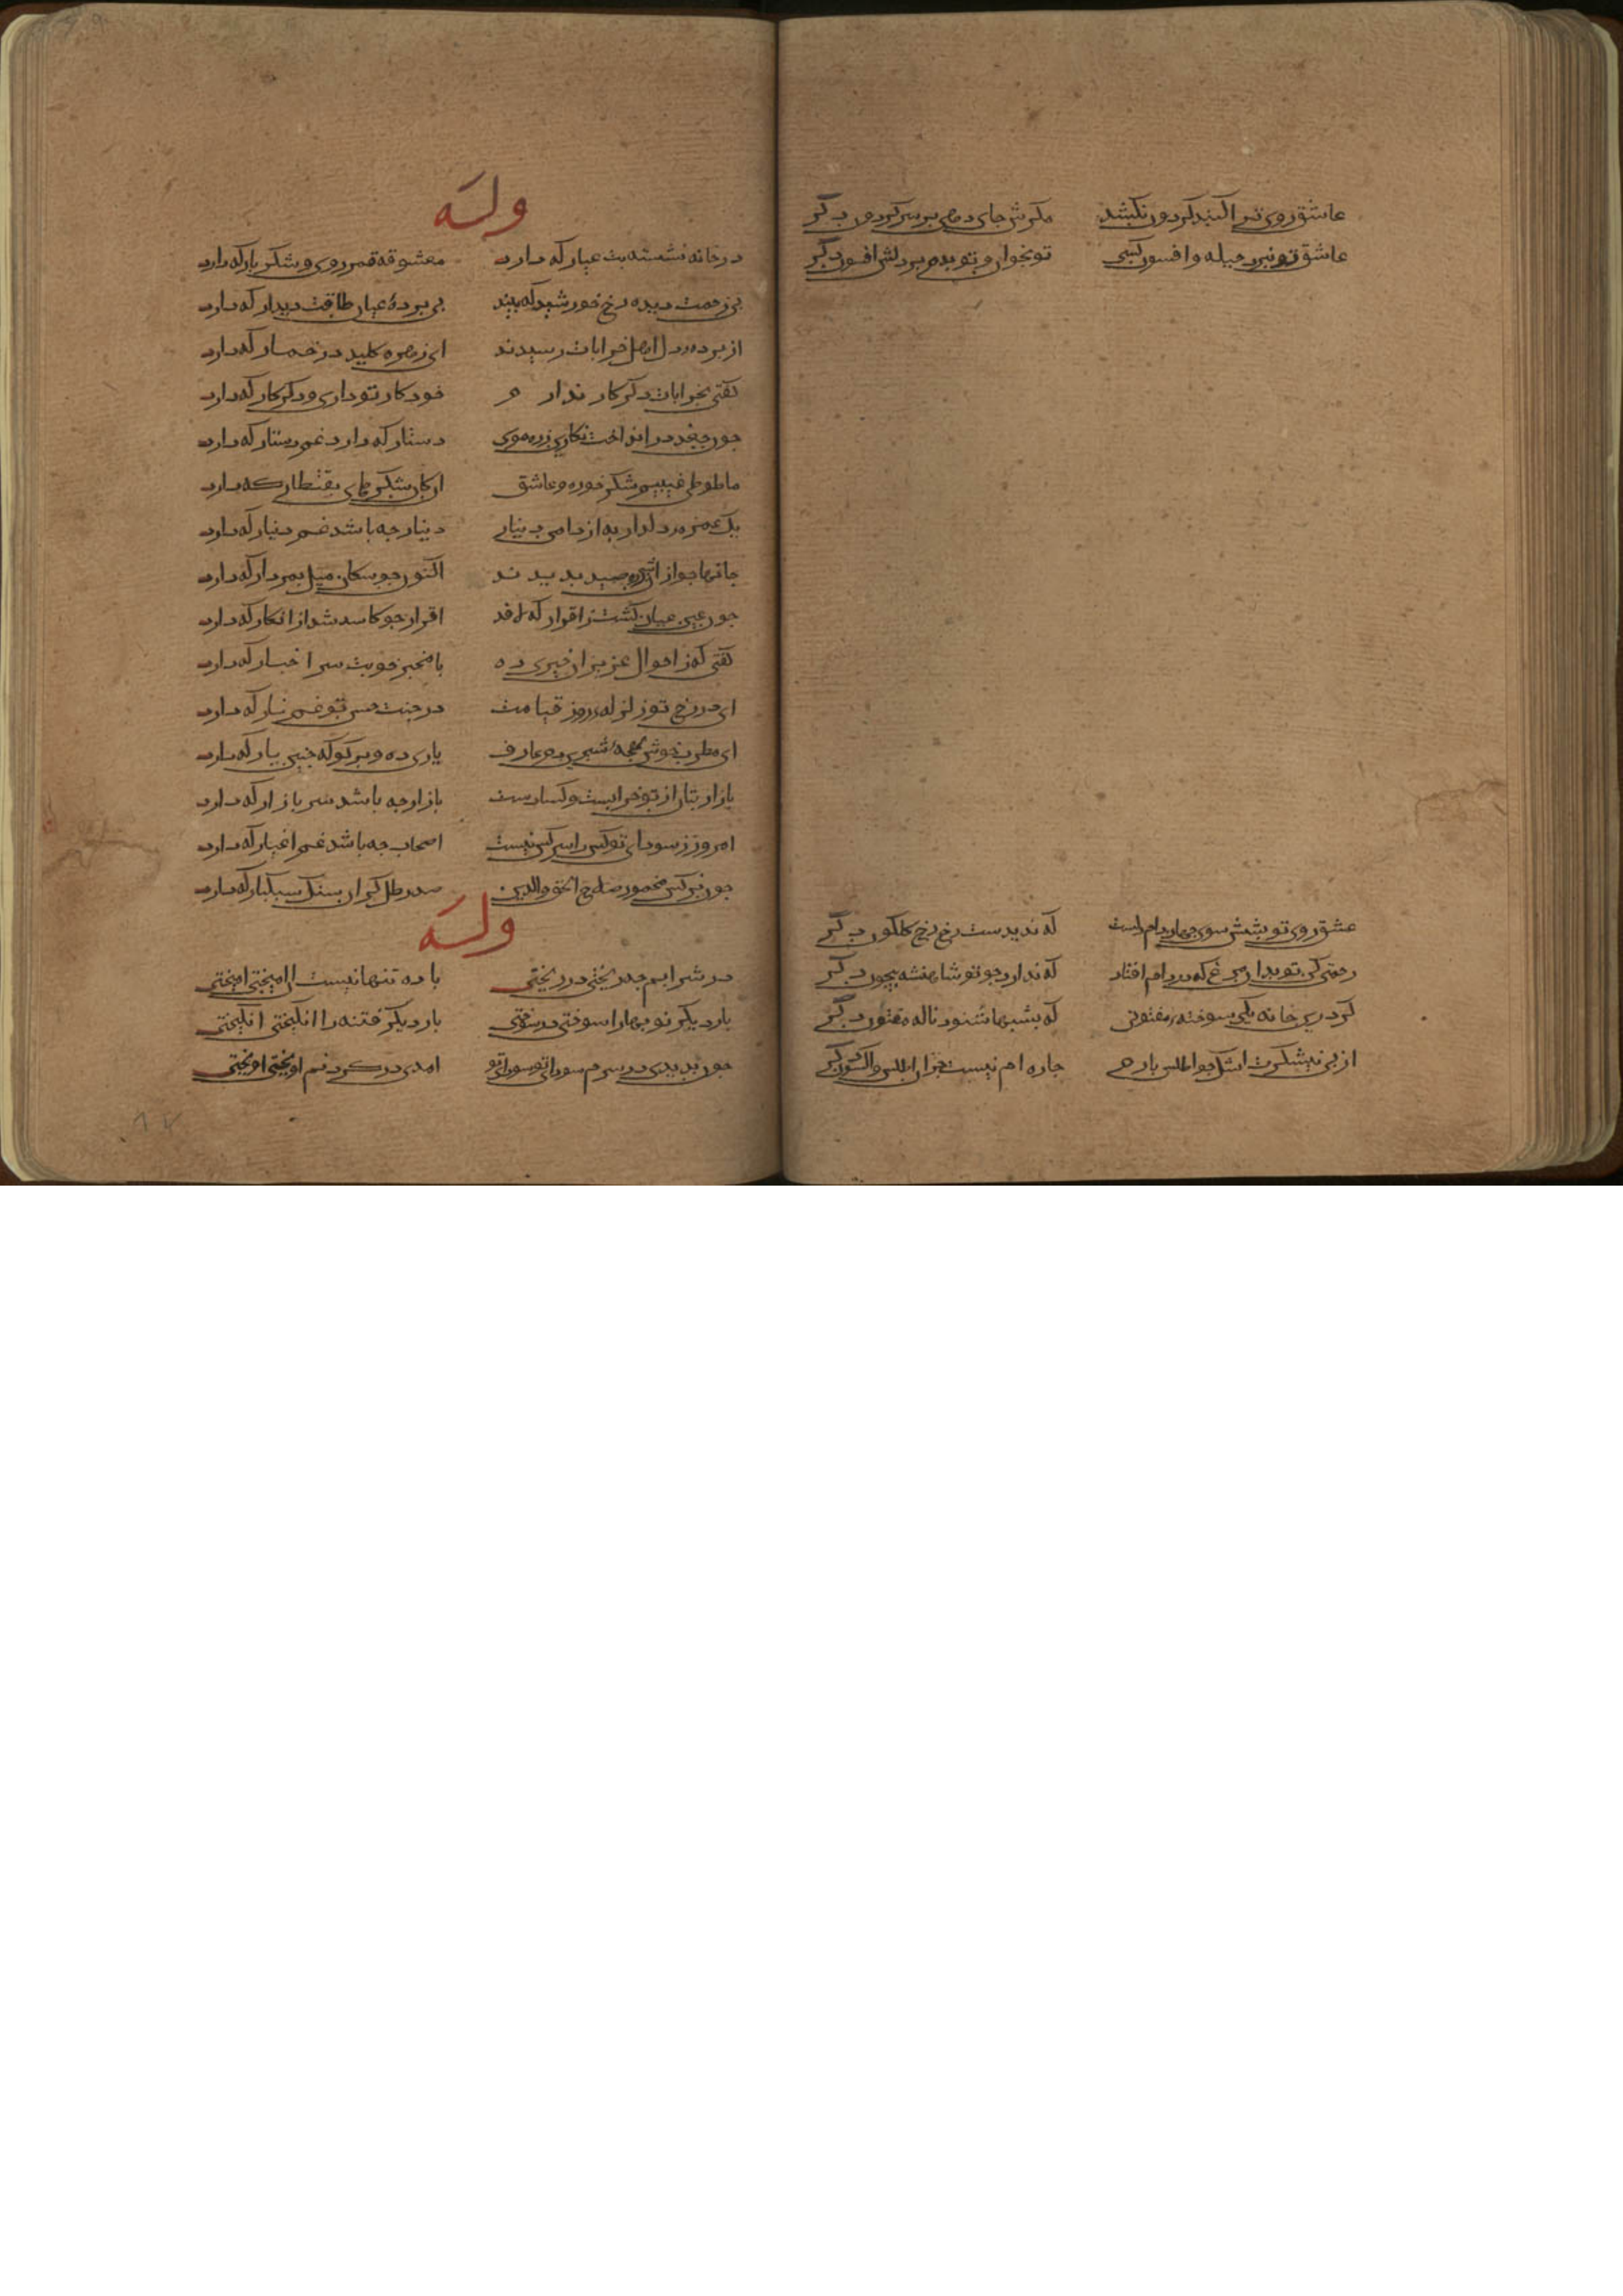 عاشق روی ترا کنبد کردون نکشد مکرش جای دهی بر سر کردون دکر
عاشق تو نبرد حیله و افسون کسی تو بخوان و تو بدم بر دلش افسون دکر
عشق روی تو بشش سوی جهان دام است که ندیدست رخ کلکون دکر
رحمتی کن تو بدان مرغ که در دام افتاد که ندارد جو تو شاهنشه بیجون دکر
کو درین خانه یکی سوخته مفتونی که بشبها شنود ناله مفتون دکر
از بی نیشکرت اشک جو اطلس بارم جاره ام نیست جز اطلس و اکسون دکر
وله
در خانه نشسته بت عیار که دارد معشوقه قمرروی و شکربار که دارد
بی زحمت دیده رخ خورشید که بیند بی برده عیان طاقت دیدار که دارد
از برده دل اهل خرابات رسیدند ای زهره کلید در خمار که دارد
کفتی بخرابات دکر کار ندارم خود کار تو داری و دکر کار که دارد
جون جغد در انداخت نکاری زره موی دستار که دارد غم دستار که دارد
ما طوطی غیبیم شکرخوره و عاشق ان کان شکرهای بقنطار که دارد
یک غمزه دلدار به از دامن دینار دینار جه باشد غم دینار که دارد
جانها جو از ان صید بدیدند اکنون جو سکان میل بمردار که دارد
جون عین عیان کشت ز اقرار که لافد اقرار جو کاسد شد از انکار که دارد
کفتی که ز احوال عزیزان خبری ده با مخبر خوبت سر اخبار که دارد
ای در رخ تو زلزله روز قیامت در جنت حسن تو غم نار که دارد
ای مطرب خوش لهجه شیرین دم عارف یاری ده و برکو که جنین یار که دارد
بازار بتان از تو خرابست و کسادست بازار جه باشد سر بازار که دارد
امروز ز سودای تو کس را سر کس نیست اصحاب جه باشد غم اغیار که دارد
جون نرکس مخمور صلاح الحق والدین صد رطل کران سنک سبکبار که دارد
وله
در شرابم جیز دیکر ریختی در ریختی باده تنها نیست این امیختی امیختی
بار دیکر توبها را سوختی در سوختی بار دیکر فتنه را انکیختی انکیختی
جون بدیدی در سرم سودای تو سودای تو امدی در کردنم اویختی اویختی